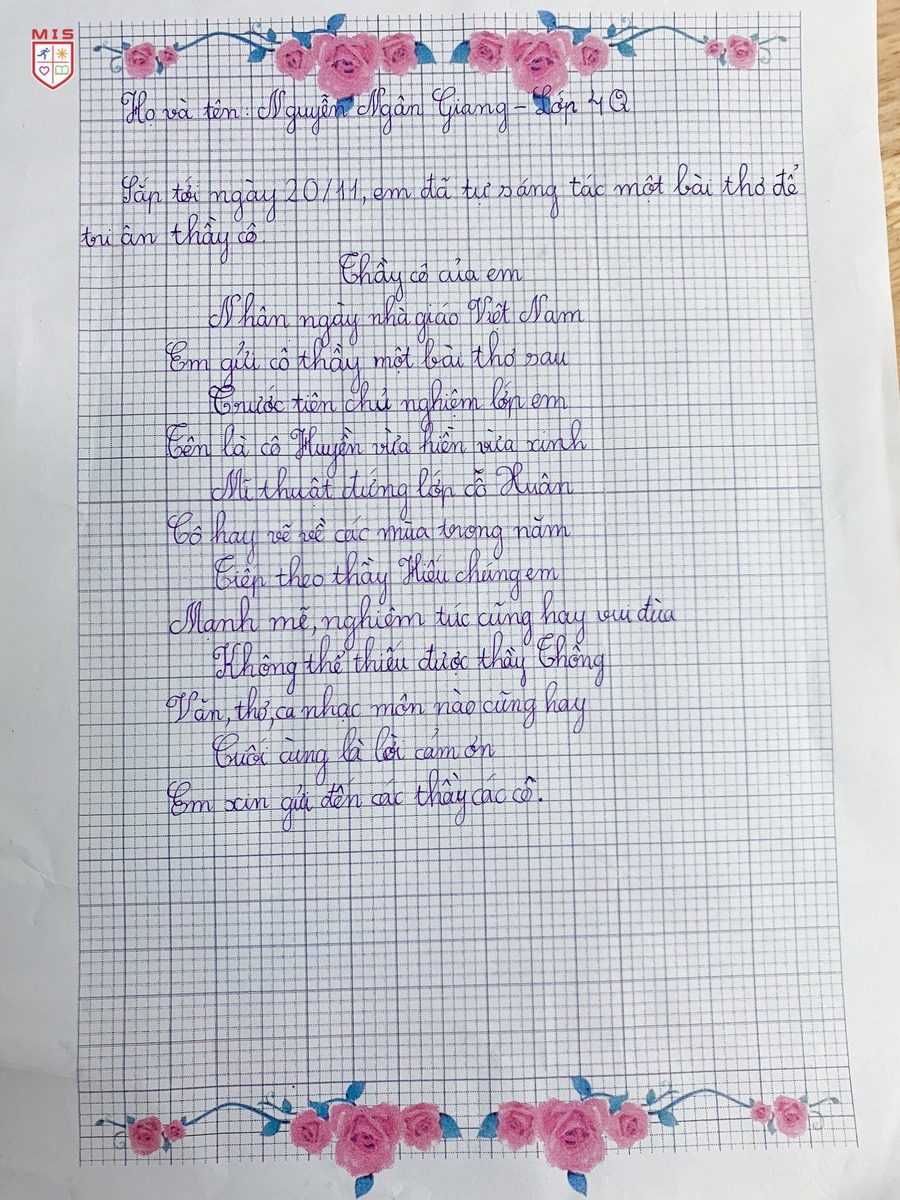 MIS
Họ và tên: Nguyễn Ngân Giang - Lớp 4Q
Sắp tới ngày 20/11, em đã tự sáng tác một bài thơ để
tri ân thầy cô.
Thầy cô của em
Nhân ngày nhà giáo Việt Nam
Em gửi cô thầy một bài thơ sau
Trước tiên chủ nghiệm lớp em
Tên là cô Huyền vừa hiền vừa xinh
Mĩ thuật đứng lớp cô Xuân
Cô hay vẽ về các mùa trong năm
Tiếp theo thầy Hiếu chúng em
Mạnh mẽ, nghiêm túc cũng hay vui đùa
Không thể thiếu được thầy Thông
Văn, thơ, ca nhạc môn nào cũng hay
Cuối cùng là lời cảm ơn
Em xin gửi đến các thầy các cô.